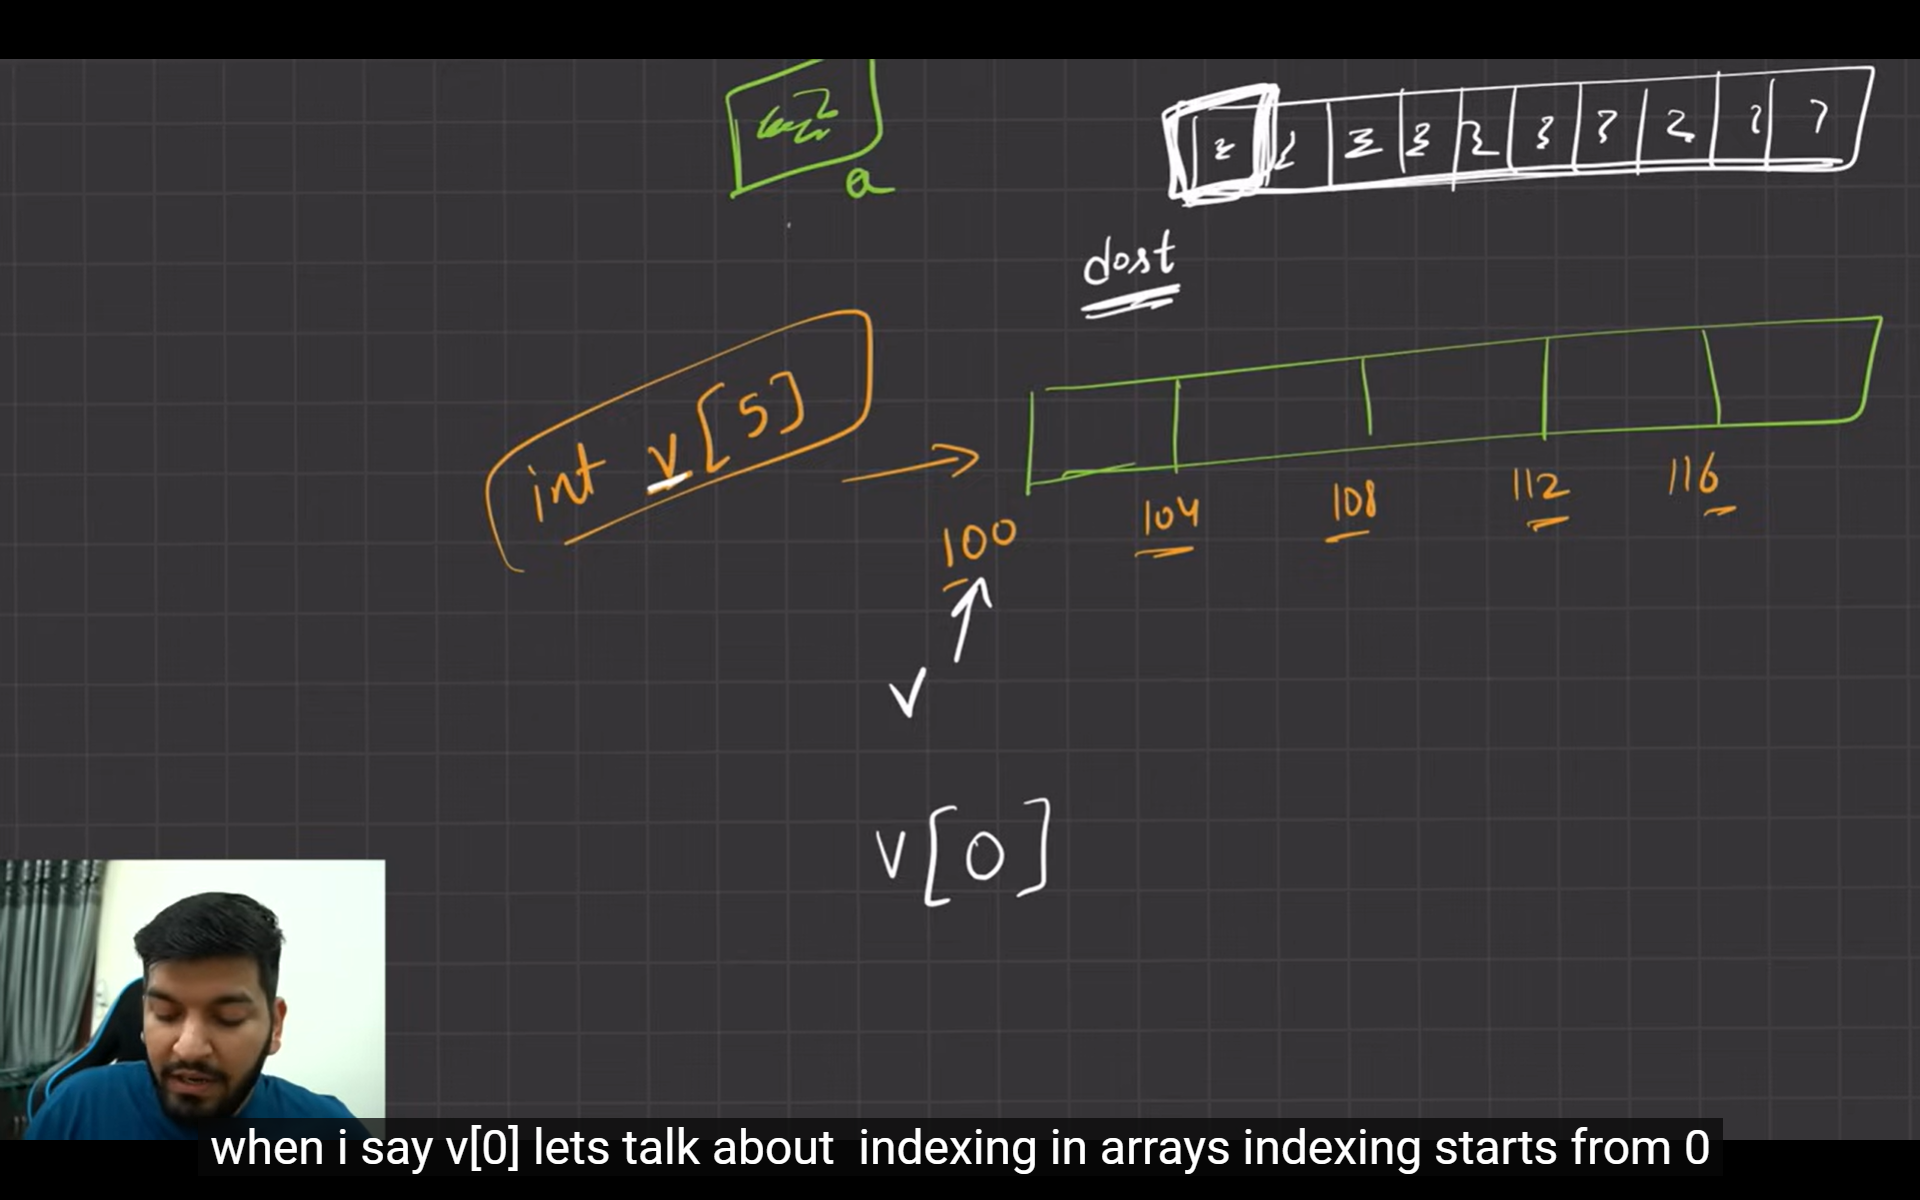 a
dost
int v[5]
100 104 108 112 116
v
v[0]
when i say v[0] lets talk about indexing in arrays indexing starts from 0